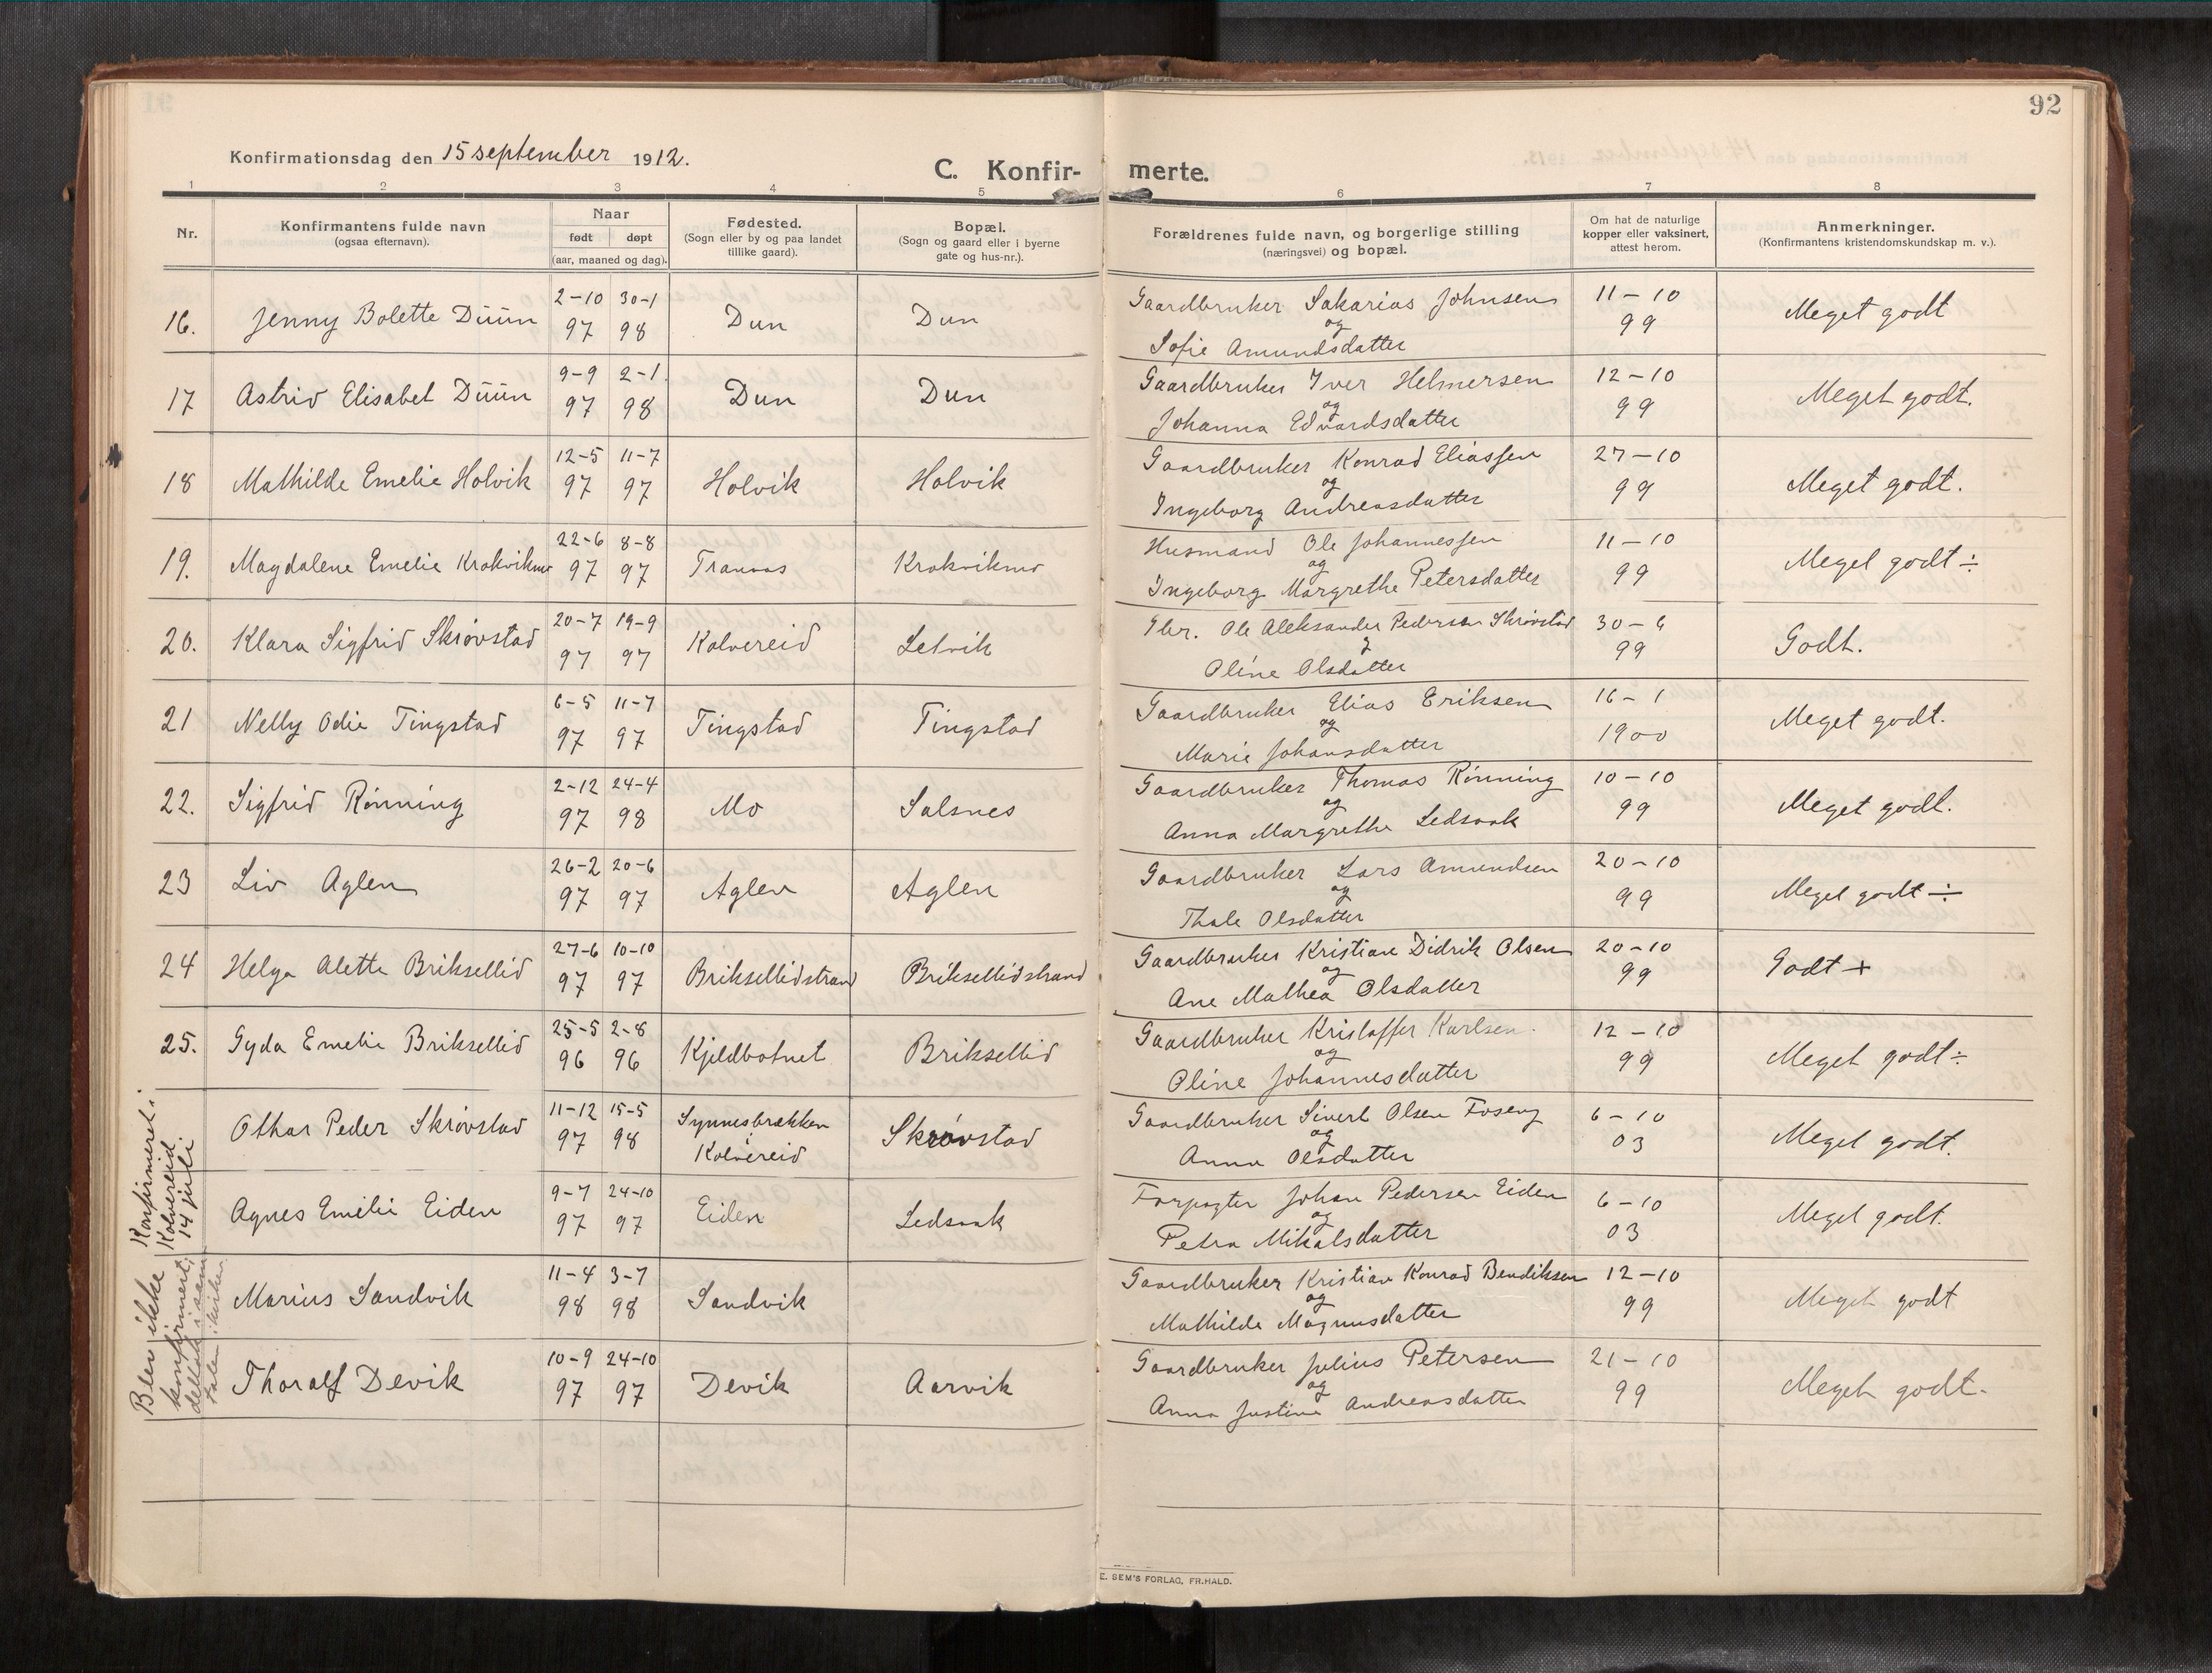 92
Konfirmationsdag den 15 september 1912.
C. Konfir- merte.
1 2 3 4 5 6 7 8
Nr.
Konfirmantens fulde navn
(ogsaa efternavn).
Naar
født døpt
(aar, maaned og dag).
Fødested.
(Sogn eller by og paa landet
tillike gaard).
Bopæl.
(Sogn og gaard eller i byerne
gate og hus-nr.).
Forældrenes fulde navn, og borgerlige stilling
(næringsvei) og bopæl.
Om hat de naturlige
kopper eller vaksinert,
attest herom.
Anmerkninger.
(Konfirmantens kristendomskundskap m. v.).
2-10 30-1 Gaardbruker Sakarias Johnsen 11-10
16. Jenny Bolette Düün 97 98 Dun Dun og 99 Meget godt
Sofie Amundsdatter
9-9 2-1 Gaardbruker Iver Helmersen 12-10
17 Astrid Elisabet Düün 97 98 Dun Dun og 99 Meget godt.
Johanna Edvardsdatter
12-5 11-7 Gaardbruker Konrad Eliassen 27-10
18 Mathilde Emelie Holvik 97 97 Holvik Holvik og 99 Meget godt.
Ingeborg Andreasdatter
22-6 8-8 Husmand Ole Johannessen 11-10
19. Magdalene Emelie Krokvikmo 97 97 Tranaas Krokvikmo og 99 Meget godt ÷
Ingeborg Margrethe Petersdatter
20-7 19-9 Gbr. Ole Aleksander Pedersen Skrøvstad 30-6
20. Klara Sigfrid Skrøvstad 97 97 Kolvereid Setvik 99 Godt.
Oline Olsdatter
6-5 11-7 Gaardbruker Elias Eriksen 16-1
21 Nelly Odie Tingstad 97 97 Tingstad Tingstad og 1900 Meget godt.
Marie Johansdatter
2-12 24-4 Gaardbruker Thomas Rønning 10-10
22. Sigfrid Rønning 97 98 Mo Salsnes og 99 Meget godt.
Anna Margrethe Ledsaak
26-2 20-6 Gaardbruker Lars Amundsen 20-10
23 Liv Aglen 97 97 Aglen Aglen og 99 Meget godt ÷
Thale Olsdatter
27-6 10-10 Gaardbruker Kristian Didrik Olsen 20-10
24 Helga Alette Briksellid 97 97 Briksellidstrand Briksellidstrand og 99 Godt +
Ane Mathea Olsdatter
25-5 2-8 Gaardbruker Kristoffer Karlsen 12-10
25. Gyda Emelie Briksellid 96 96 Kjeldbotnet Briksellid og 99 Meget godt ÷
Oline Johannesdatter
11-12 15-5 Synnesbrækken Gaardbruker Sivert Olsen Foseng 6-10
Othar Peder Skrøvstad 97 98 Kolvereid Skrøvstad og 03 Meget godt.
Anna Olsdatter
9-7 24-10 Forpagter Johan Pedersen Eiden 6-10
Agnes Emelie Eiden 97 97 Eiden Ledsaak og 03 Meget godt.
Petra Mikalsdatter
11-4 3-7 Gaardbruker Kristian Konrad Bendiksen 12-10
Marius Sandvik 98 98 Sandvik og 99 Meget godt
Mathilde Magnusdatter
10-9 24-10 Gaardbruker Julius Petersen 21-10
Thoralf Devik 97 97 Devik Aarvik og 99 Meget godt.
Anna Justine Andreasdatter
Konfirmeret i
Kolvereid
14 juli
Blev ikke
konfirmert,
deltok i sam
talen i kirken.
E. SEM'S FORLAG, FR.HALD.